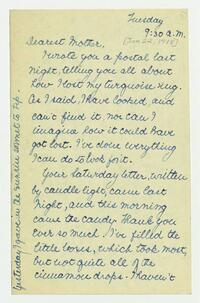 Tuesday
9:30 A.M.
[Jan 22, 1918]
Dearest Mother,
I wrote you a postal last
night, telling you all about
how I lost my turquoise ring.
As I said, I have looked, and
can't find it, nor can I
imagine how it could have
got lost. I've done everything
I can do to look for it.
Your Saturday letter, written
by candle light, came last
night, and this morning
came the candy. Thank you
ever so much. I've filled the
little boxes, which took most,
but not quite all of the
cinnamon drops. I haven't
Yesterday I gave in as sunrise sonnet to